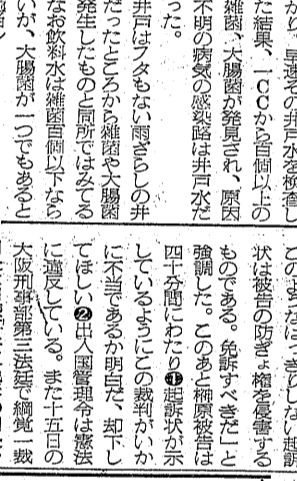 かり、早速その井戸水を検査し
た結果、一CCから百個以上の
雑菌、大腸菌が発見され、原因
不明の病気の感染路は井戸水だ
った。
井戸はフタもない雨ざらしの井
だったところから雑菌や大腸菌
発生したものと同所ではみてる
なお飲料水は雑菌百個以下なら
いが、大腸菌が一つでもあると
このようなはっきりしない起訴
状は被告の防ぎょ権を侵害する
ものである。免訴すべきだ」と
強調した。このあと榊原被告は
四十分間にわたり❶起訴状が示
しているようにこの裁判がいか
に不当であるか明白だ、却下し
てほしい❷出入国管理令は憲法
に違反している。また十五日の
大阪刑事部第三法廷で綱覚一裁